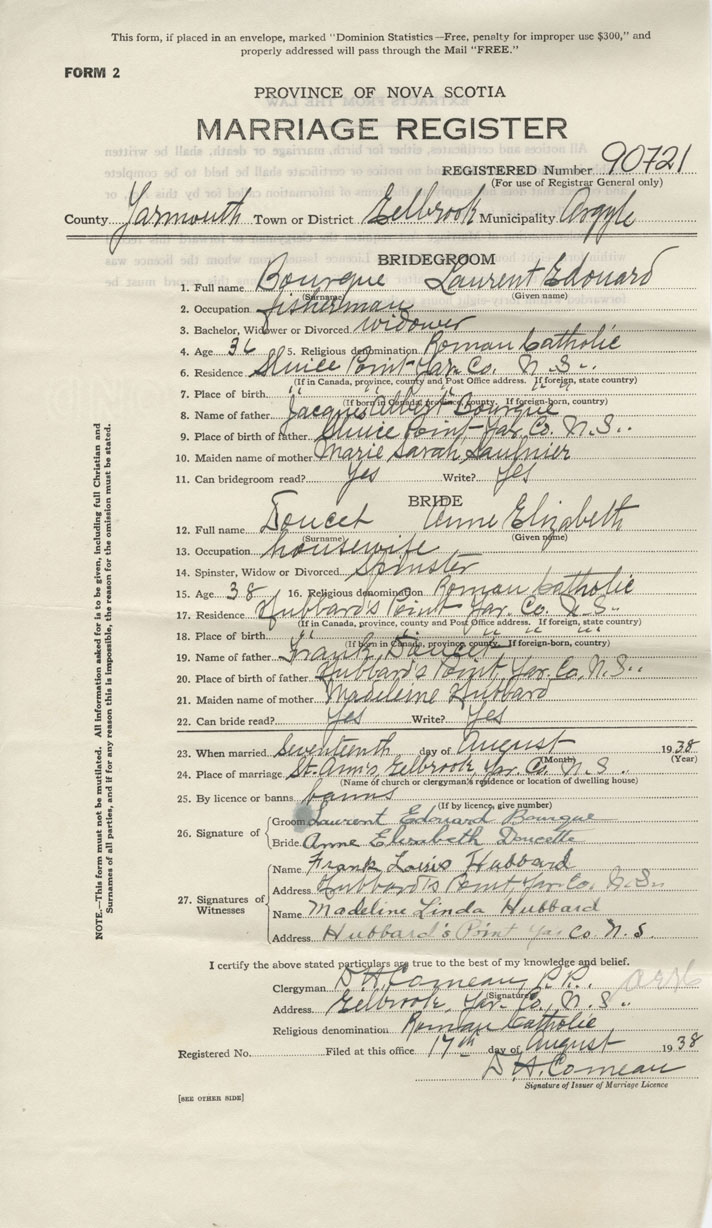 This form, if placed in an envelope, marked "Dominion Statistics—Free, penalty for improper use $300," and
properly addressed will pass through the Mail "FREE."
FORM 2
PROVINCE OF NOVA SCOTIA
MARRIAGE REGISTER
REGISTERED Number 90721
(For use of Registrar General only)
County Yarmouth Town or District Eelbrook Municipality Argyle
BRIDEGROOM
1. Full name Bourque Laurent Edouard
(Surname) (Given name)
2. Occupation fisherman
3. Bachelor, Widower or Divorced widower
4. Age 36 5. Religious denomination Roman Catholic
6. Residence Sluice Point Yar. Co. N. S..
(If in Canada, province, county and Post Office address. If foreign, state country)
7. Place of birth " " " " "
(If born in Canada, province, county. If foreign-born, country)
8. Name of father Jacques Albert Bourque
9. Place of birth of father Sluice Point, Yar. Co. N. S..
10. Maiden name of mother Marie Sarah Saulnier
11. Can bridegroom read? Yes Write? Yes
BRIDE
12. Full name Doucet Anne Elizabeth
(Surname) (Given name)
13. Occupation housewife
14. Spinster, Widow or Divorced Spinster
15. Age 38 16. Religious denomination Roman Catholic
17. Residence Hubbard's Point Yar. Co. N. S..
(If in Canada, province, county and Post Office address. If foreign, state country)
18. Place of birth " " " " "
(If born in Canada, province, county. If foreign-born, country)
19. Name of father Frank Doucet
20. Place of birth of father Hubbard's Point, Yar. Co. N. S..
21. Maiden name of mother Madeleine Hubbard
22. Can bride read? Yes Write? Yes
23. When married Seventeenth day of August 1938
(Month) (Year)
24. Place of marriage St. Ann's Eelbrook, Yar. Co. N. S..
(Name of church or clergyman's residence or location of dwelling house)
25. By licence or banns banns
(If by licence, give number)
26. Signature of Groom Laurent Edouard Bourque
Bride Anne Elizabeth Doucette
27. Signatures of Witnesses
Name Frank Louis Hubbard
Address Hubbard's Point, Yar. Co. N. S..
Name Madeline Linda Hubbard
Address Hubbard's Point Yar. Co. N. S.
I certify the above stated particulars are true to the best of my knowledge and belief.
Clergyman D. A. Comeau, P.P.
(Signature)
Address Eelbrook, Yar. Co., N. S..
Religious denomination Roman Catholic
Registered No. Filed at this office 17th day of August 1938
D. A. Comeau
Signature of Issuer of Marriage Licence
[SEE OTHER SIDE]
NOTE.—This form must not be mutilated. All information asked for is to be given, including full Christian and
Surnames of all parties, and if for any reason this is impossible, the reason for the omission must be stated.